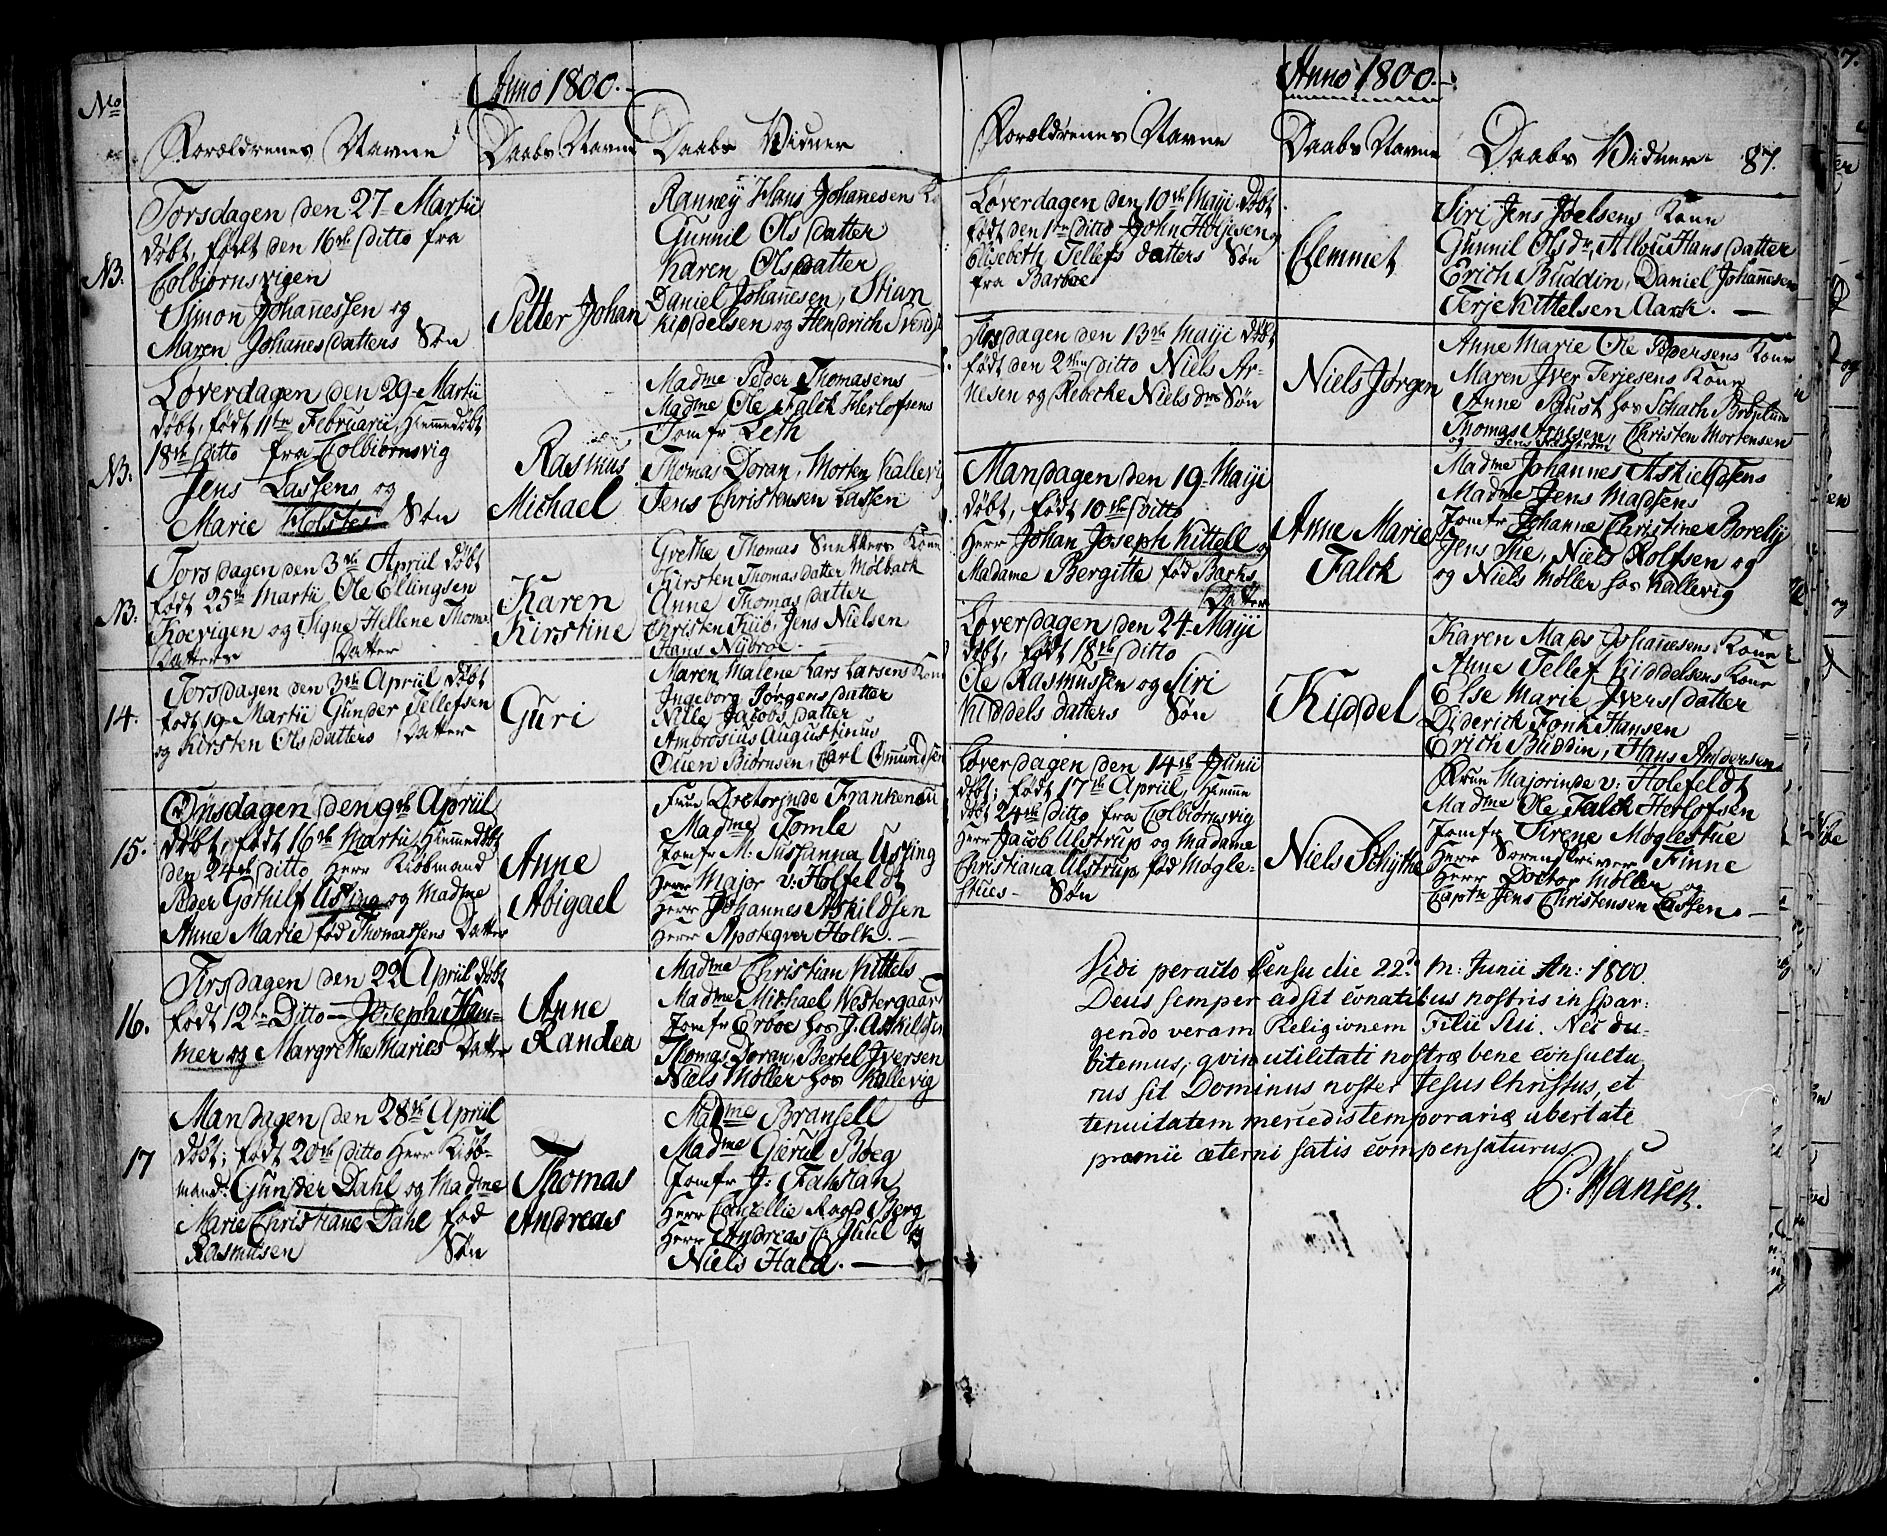 No
Anno 1800.
Forældrenes Navne
Daabs Navne
Daabs Vidner
NB.
Torsdagen den 27 Martii
døbt, født den 16de ditto fra
Colbiørnsvigen
Simon Johannessen og
Maren Johanesdatters Søn
Petter Johan
Ranney Hans Johannesens Ko
Gunnil Olsdatter
Karen Olsdatter
Daniel Johannesen, Stian
Kiddelsen og Hendrich Svends
NB.
Løverdagen den 29 Martii
døbt, født 11te Februarii, Hiemmedøbt
18de ditto fra Colbiørnsvig
Jens Lassens og
Marie Holsters Søn
Rasmus
Michael
Madme Peder Thomasens
Madme Ole Falck Herlofsens
Jomfr Leth
Thomas Doran, Morten Kallevig
Jens Christensen Lassen
NB.
Torsdagen den 3de Apriil døbt
født 25de Martii Ole Ellingsen
Koevigen og Signe Hellene Thoma
Datters Datter
Karen
Kirstine
Grethe Thomas Snekkers Kone
Kirsten Thomasdatter Molback
Anne Thomasdatter
Christen Kiib, Jens Nielsen
Hans Nybroe.
14.
Torsdagen den 3de Apriil døbt
født 19 Martii Gunder Tellefsen
og Kirsten Olsdatters Datter
Guri
Maren Malene Lars Larsens Kone
Ingeborg Jørgensdatter
Nille Jacobsdatter
Ambrosius Augustinus
Ouen Biørnsen, Carl Omundsen
15.
Onsdagen den 9de Apriil
døbt, født 16de Martii, Hiemmedøbt
den 24de ditto, Herr Kiøbmand
Peder Gothilf Ussing og Madme
Anne Marie fød Thomassens Datter
Anne
Abigael
Frue Doctorinde Frankenau
Madme Tomle
Jomfr M: Sussanna Ussing
Herr Major v: Holfeldt
Herr Johannes Askildsen
Herr Apotequer Holk.
16.
Tirsdagen den 22 Apriil døbt
født 12te Ditto Joseph Ham-
mer og Margrethe Maries Datter
Anne
Randea
Madme Christian Kittels
Madme Michael Westergaard
Jomfr Erboe hos J. Askildsen
Thomas Doran, Bertel Iversen
Niels Møller hos Kallevig
17
Mandagen den 28de Apriil
døbt; født 20de ditto Herr Kiøb-
mand Gunder Dahl og Madme
Marie Christiane Dahl fød
Rasmusen Søn
Thomas
Andreas
Madme Bransell
Madme Gierul Boeg
Jomfr J: Falsiah
Herr Cancellie Raad Berg
Herr Andreas C: Juul og
Niels Hald.
Anno 1800.
Forældrenes Navne
Daabs Navne
Daabs Vidner
87.
Løverdagen den 10de Maii døbt
født den 1te ditto John Høljesen og
Elisebeth Tellefsdatters Søn
fra Barboe
Clemmet
Siri Jens Joelsens Kone
Gunnil Olsdr, Allou Hansdatter
Erich Buddin, Daniel Johannesen
Terje Kittelsen Aark.
Tirsdagen den 13de Maii døbt
født den 2den ditto Niels Ar-
nesen og Rebecke Nielsdrs Søn
Niels Jørgen
Anne Marie Ole Pedersens Kone
Maren Iver Terjesens Kone
Anne Faust hos Schach
Thomas Arnesen, Christen Mortensen
og Jens
Mandagen den 19 Maii
døbt, født 10de ditto
Herr Johan Joseph Kittell og
Madame Bergitte fød Barks
Datter
Anne Marie
Falck
Madme Johannes Askieldsens
Madme Jens Madsens
Jomfr Johanne Christine Borelij
Jens The, Niels Rolfsen og
og Niels Møller hos Kallevig
Løverdagen den 24 Maii
døbt, født 18de ditto
Ole Rasmussen og Siri
Kiddelsdatters Søn
Kiddel
Karen Mads Johannesens Kone
Anne Tellef Kiddelsens Kone
Else Marie Iversdatter
Diderick Fonk Hansen
Erich Buddin, Hans Andersen
Løverdagen den 14de Junii
døbt; født 17de Apriil, Hiemme
døbt 24de ditto fra Colbiørnsvig
Herr Jacob Ulstrup og Madame
Christiana Ulstrup fød Mogle-
stues Søn
Niels Schythe
Frue Majorinde v: Holefeldt
Madme Ole Falck Herlofsen
Jomfr Sirene Moglestue
Herr Sorenskriver Finne
Herr Doctor Møller og
Captn Jens Christensen Lassen.
Vidi peracto Censu die 22d M: Junii An: 1800
Deus semper adsit conatibus nostris in spar:
gendo veram Religionem Filii Sui. Nec du-
bitemus, qvin utilitati nostræ bene consultu
rus sit Dominus noster Jesus Christus, et
tenuitatem mercedis temporariæ ubertate
præmii æterni satis compensaturus
P. Hansen.